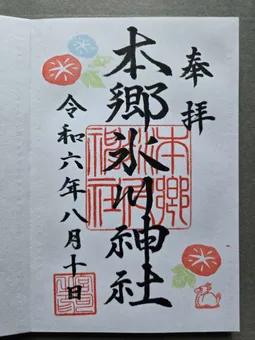 奉拝
本郷氷川神社
本郷氷川神社
令和六年八月十日